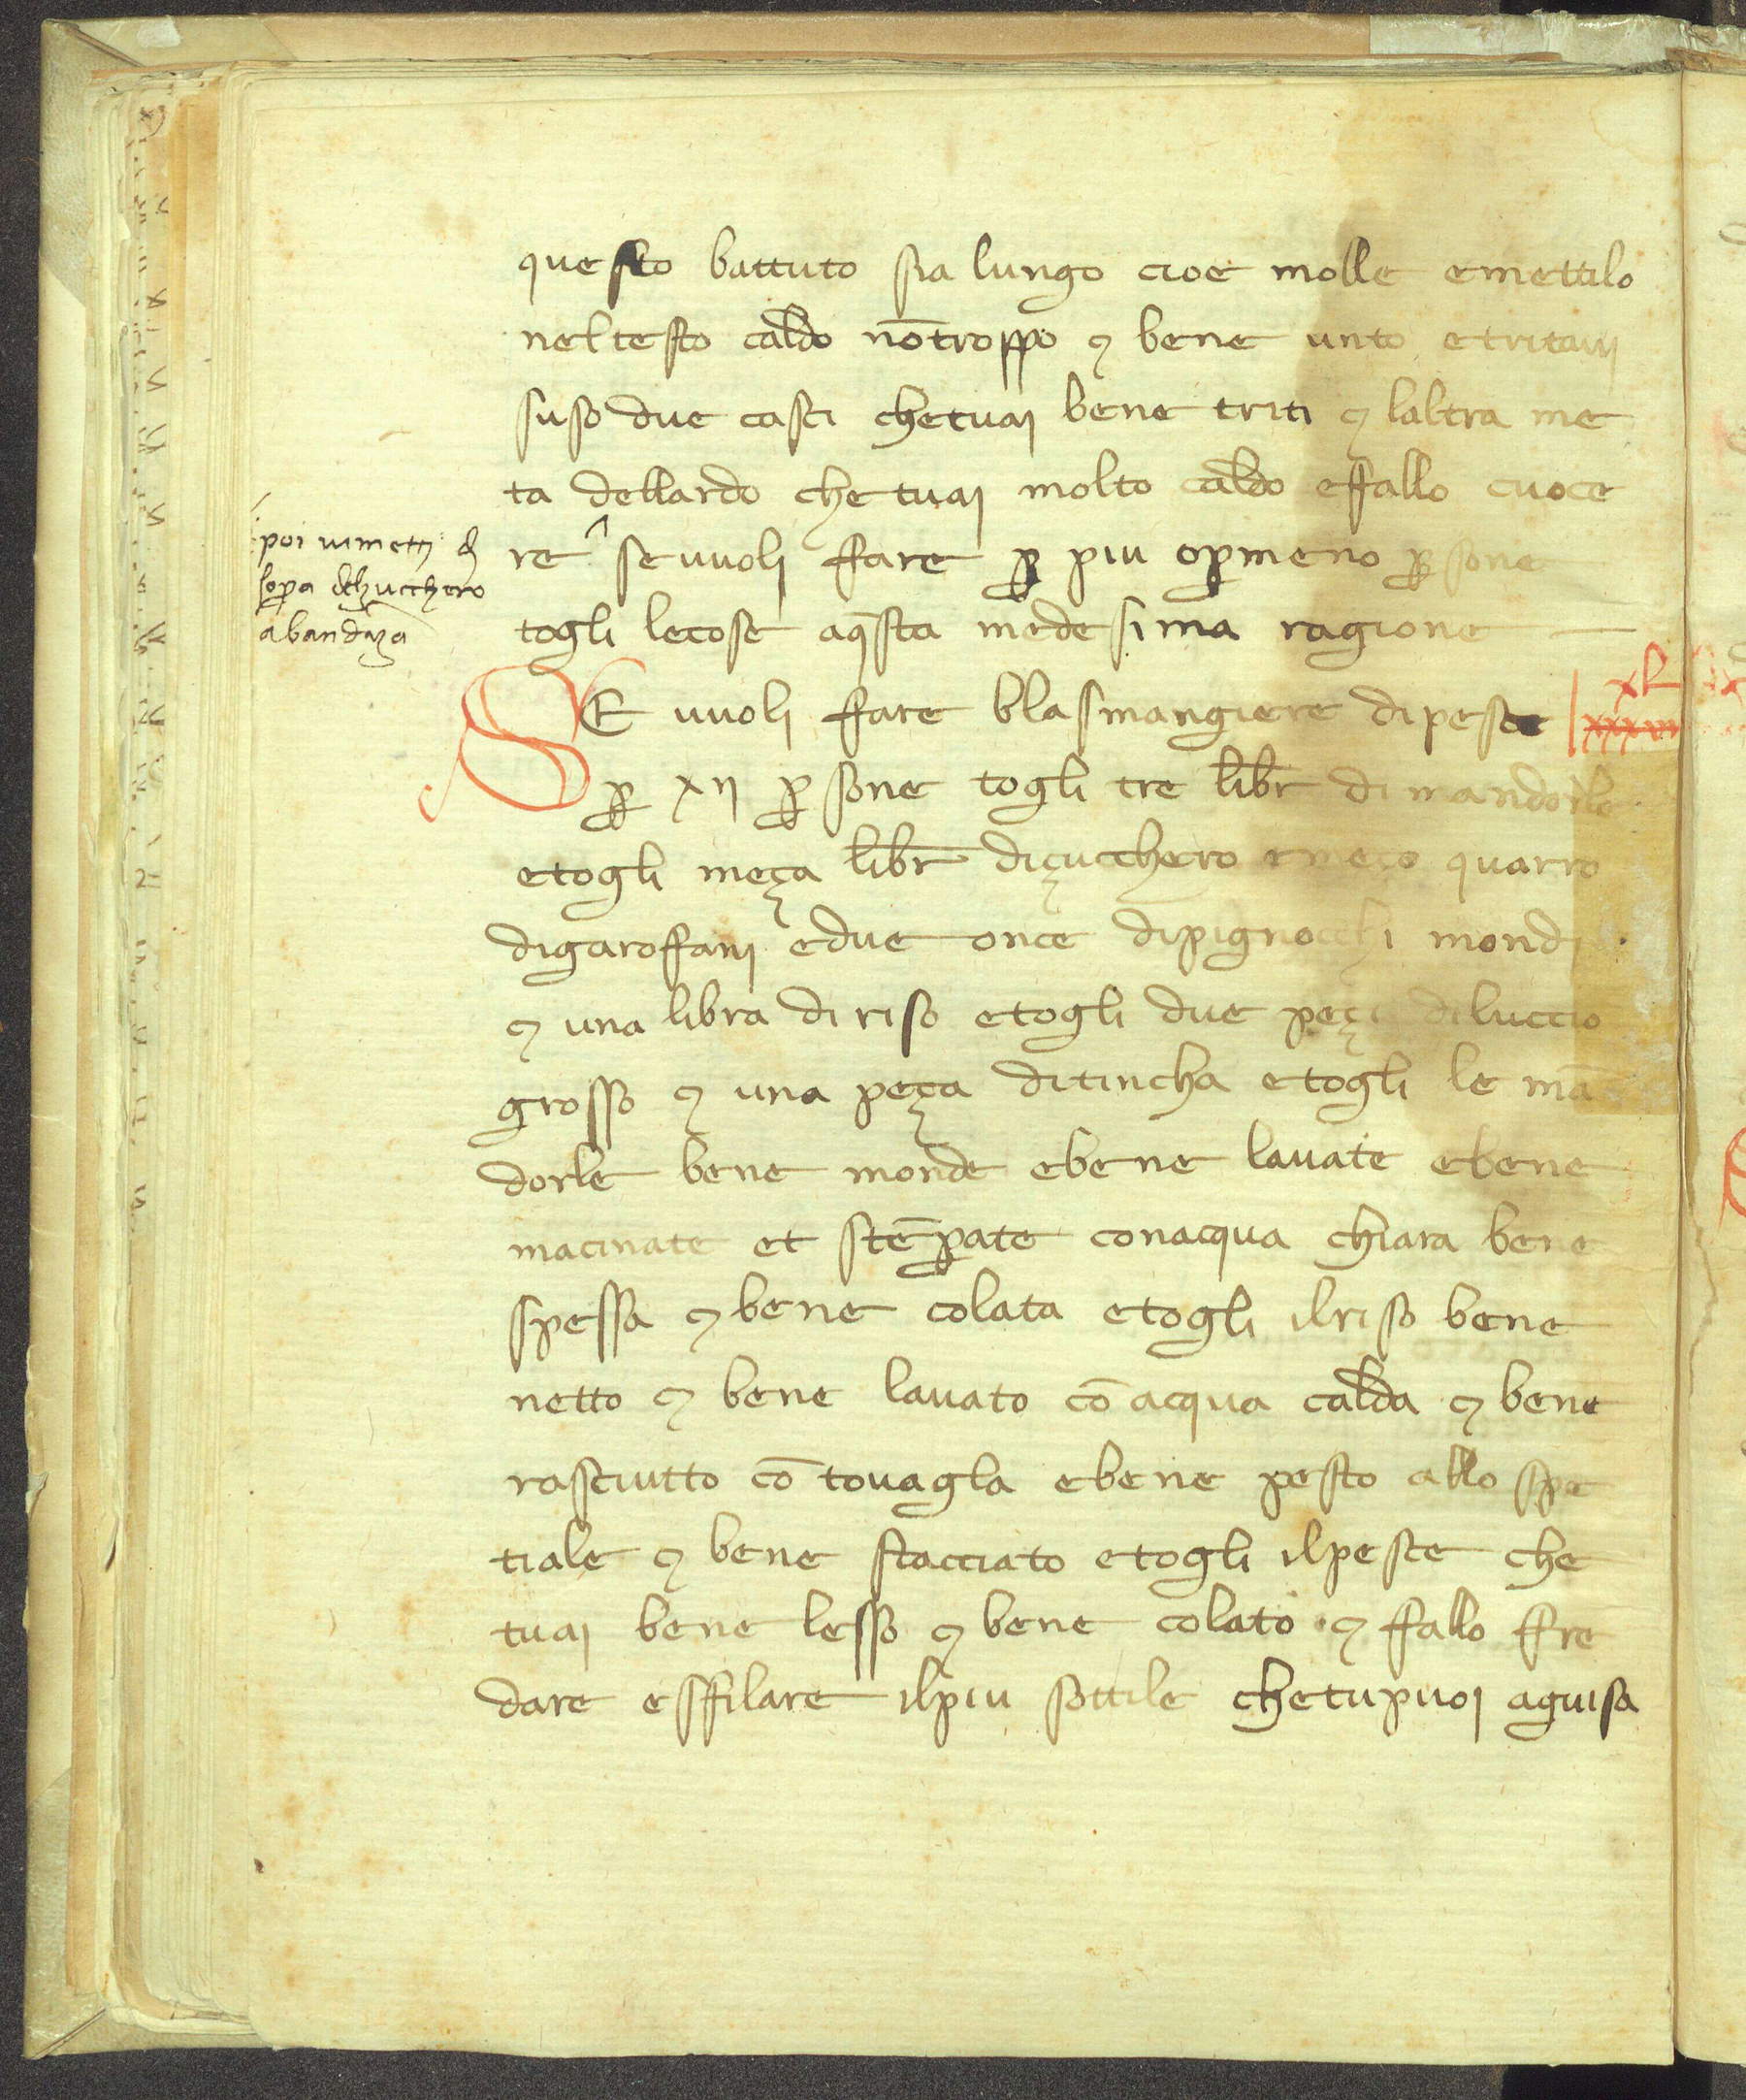 questo battuto sia lungo cioe molle emettilo
neltesto caldo nōtroppo ⁊ bene unto etritavi
suso due casci chetuai bene triti ⁊ laltra me
ta dellardo chetuai molto caldo effallo cuoce
re ^ seuuoli ffare ꝑ piu oꝑmeno ꝑsone
poi vimetti d
soꝑa delzucchero
abandāza
togli lecose aq̄sta medesima ragione
SE uuoli ffare blasmangiere dipesce
xl
ꝑ xij ꝑsone togli tre libr̄ di mandorle
etogli meça libr̄ diçucchero emeço quarro
digaroffani edue once dipignocchi mondi
⁊ una libra di riso etogli due peçi diluccio
grosso ⁊ una peça ditincha etogli le mā
dorle bene monde ebene lauate ebene
macinate et stēperate conacqua chiara bene
spessa ⁊ bene colata etogli ilriso bene
netto ⁊ bene lauato cō acqua calda ⁊ bene
rasciutto cō touagla ebene pesto allo spe
tiale ⁊ bene stacciato etogli ilpesce che
tuai bene lesso ⁊ bene colato ⁊ ffallo ffre
dare esffilare ilpiu sottile chetupuoi aguisa